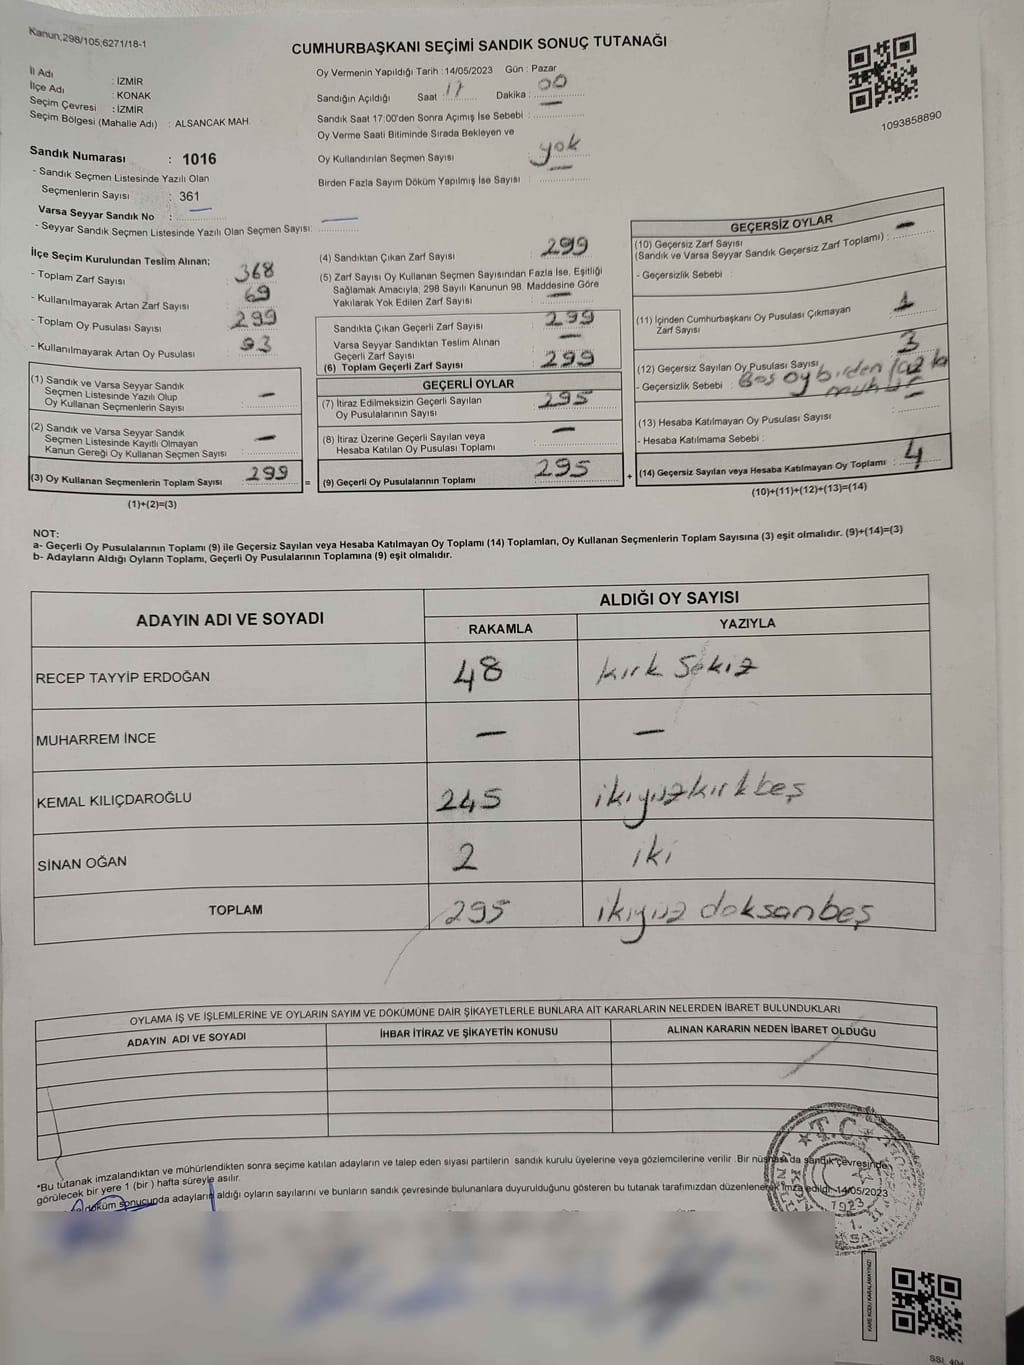 Kanun;298/105;6271/18-1
CUMHURBAŞKANI SEÇİMİ SANDIK SONUÇ TUTANAĞI
İl Adı : İZMİR
İlçe Adı : KONAK
Seçim Çevresi : İZMİR
Seçim Bölgesi (Mahalle Adı) : ALSANCAK MAH.
Sandık Numarası : 1016
- Sandık Seçmen Listesinde Yazılı Olan
Seçmenlerin Sayısı : 361
Varsa Seyyar Sandık No : —
- Seyyar Sandık Seçmen Listesinde Yazılı Olan Seçmen Sayısı: —
Oy Vermenin Yapıldığı Tarih : 14/05/2023 Gün : Pazar
Sandığın Açıldığı Saat : 17 Dakika : 00
Sandık Saat 17:00'den Sonra Açımış İse Sebebi : —
Oy Verme Saati Bitiminde Sırada Bekleyen ve
Oy Kullandırılan Seçmen Sayısı : yok
Birden Fazla Sayım Döküm Yapılmış İse Sayısı : —
1093858890
İlçe Seçim Kurulundan Teslim Alınan;
- Toplam Zarf Sayısı : 368
- Kullanılmayarak Artan Zarf Sayısı : 69
- Toplam Oy Pusulası Sayısı : 299
- Kullanılmayarak Artan Oy Pusulası : 93
(1) Sandık ve Varsa Seyyar Sandık
Seçmen Listesinde Yazılı Olup
Oy Kullanan Seçmenlerin Sayısı : —
(2) Sandık ve Varsa Seyyar Sandık
Seçmen Listesinde Kayıtlı Olmayan
Kanun Gereği Oy Kullanan Seçmen Sayısı : —
(3) Oy Kullanan Seçmenlerin Toplam Sayısı : 299
(1)+(2)=(3)
=
(4) Sandıktan Çıkan Zarf Sayısı : 299
(5) Zarf Sayısı Oy Kullanan Seçmen Sayısından Fazla İse, Eşitliği
Sağlamak Amacıyla, 298 Sayılı Kanunun 98. Maddesine Göre
Yakılarak Yok Edilen Zarf Sayısı : —
Sandıkta Çıkan Geçerli Zarf Sayısı : 299
Varsa Seyyar Sandıktan Teslim Alınan
Geçerli Zarf Sayısı : —
(6) Toplam Geçerli Zarf Sayısı : 299
GEÇERLİ OYLAR
(7) İtiraz Edilmeksizin Geçerli Sayılan
Oy Pusulalarının Sayısı : 295
(8) İtiraz Üzerine Geçerli Sayılan veya
Hesaba Katılan Oy Pusulası Toplamı : —
(9) Geçerli Oy Pusulalarının Toplamı : 295
+
GEÇERSİZ OYLAR
(10) Geçersiz Zarf Sayısı
(Sandık ve Varsa Seyyar Sandık Geçersiz Zarf Toplamı) : —
- Geçersizlik Sebebi :
(11) İçinden Cumhurbaşkanı Oy Pusulası Çıkmayan
Zarf Sayısı : 1
(12) Geçersiz Sayılan Oy Pusulası Sayısı : 3
- Geçersizlik Sebebi : Boş oy birden fazla
mühür
(13) Hesaba Katılmayan Oy Pusulası Sayısı : —
- Hesaba Katılmama Sebebi :
(14) Geçersiz Sayılan veya Hesaba Katılmayan Oy Toplamı : 4
(10)+(11)+(12)+(13)=(14)
NOT:
a- Geçerli Oy Pusulalarının Toplamı (9) ile Geçersiz Sayılan veya Hesaba Katılmayan Oy Toplamı (14) Toplamları, Oy Kullanan Seçmenlerin Toplam Sayısına (3) eşit olmalıdır. (9)+(14)=(3)
b- Adayların Aldığı Oyların Toplamı, Geçerli Oy Pusulalarının Toplamına (9) eşit olmalıdır.
ADAYIN ADI VE SOYADI ALDIĞI OY SAYISI
RAKAMLA YAZIYLA
RECEP TAYYİP ERDOĞAN 48 kırk sekiz
MUHARREM İNCE — —
KEMAL KILIÇDAROĞLU 245 ikiyüzkırkbeş
SİNAN OĞAN 2 iki
TOPLAM 295 ikiyüz doksanbeş
OYLAMA İŞ VE İŞLEMLERİNE VE OYLARIN SAYIM VE DÖKÜMÜNE DAİR ŞİKAYETLERLE BUNLARA AİT KARARLARIN NELERDEN İBARET BULUNDUKLARI
ADAYIN ADI VE SOYADI İHBAR İTİRAZ VE ŞİKAYETİN KONUSU ALINAN KARARIN NEDEN İBARET OLDUĞU
*Bu tutanak imzalandıktan ve mühürlendikten sonra seçime katılan adayların ve talep eden siyasi partilerin sandık kurulu üyelerine veya gözlemcilerine verilir. Bir nüshası da sandık çevresinde
görülecek bir yere 1 (bir ) hafta süreyle asılır.
döküm sonucunda adayların aldığı oyların sayılarını ve bunların sandık çevresinde bulunanlara duyurulduğunu gösteren bu tutanak tarafımızdan düzenlenerek imza edildi. 14/05/2023
T.C.
1923
KARE KODU KARALAMAYINIZ!